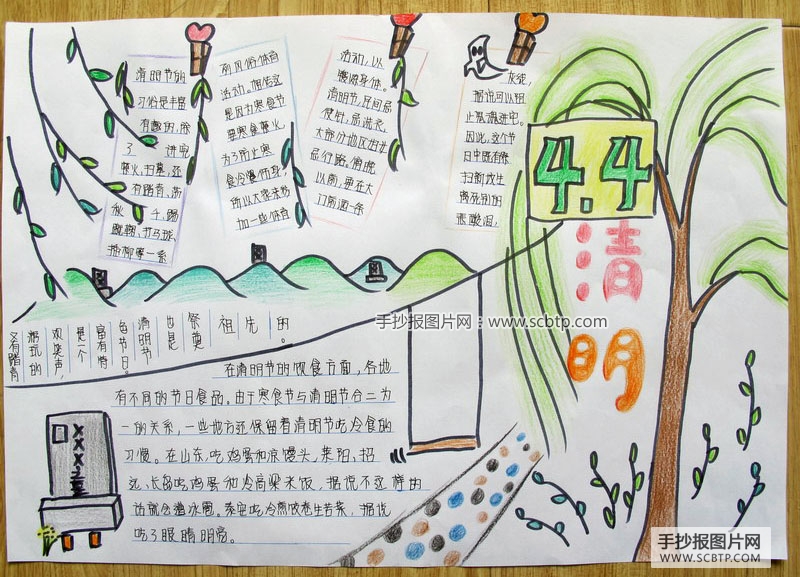 清明节的
习俗是丰富
有趣的,除
了 讲究
禁火,扫墓,还
有踏青、荡
秋 千、踢
蹴鞠、打马球、
插柳等一系
列风俗体育
活动。相传这
是因为寒食节
要寒食禁火,
为了防止寒
食冷餐伤身,
所以大家来参
加一些体育
活动,以
锻炼身体。
大部分地区
以前,要在大
门前洒一条
灰线,
据说可以阻
止鬼魂进宅。
因此,这个节
日中既有祭
扫新坟生
离死别的
悲酸泪,
4.4
清
明
又有踏青
游玩的
欢笑声,
是一个
富有特
色节日。
清明节
也是
祭奠
祖先的。
手抄报图片网:www.scbtp.com
在清明节的饮食方面,各地
有不同的节日食品。由于寒食节与清明节合二为
一的关系,一些地方还保留着清明节吃冷食的
习惯。在山东,吃鸡蛋和凉馒头,莱阳、招
远、长岛吃鸡蛋和冷高粱米饭,据说不这样的
话就会遭冰雹。泰安吃冷煎饼卷生苦菜,据说
吃了眼睛明亮。
手抄报图片网
WWW.SCBTP.COM